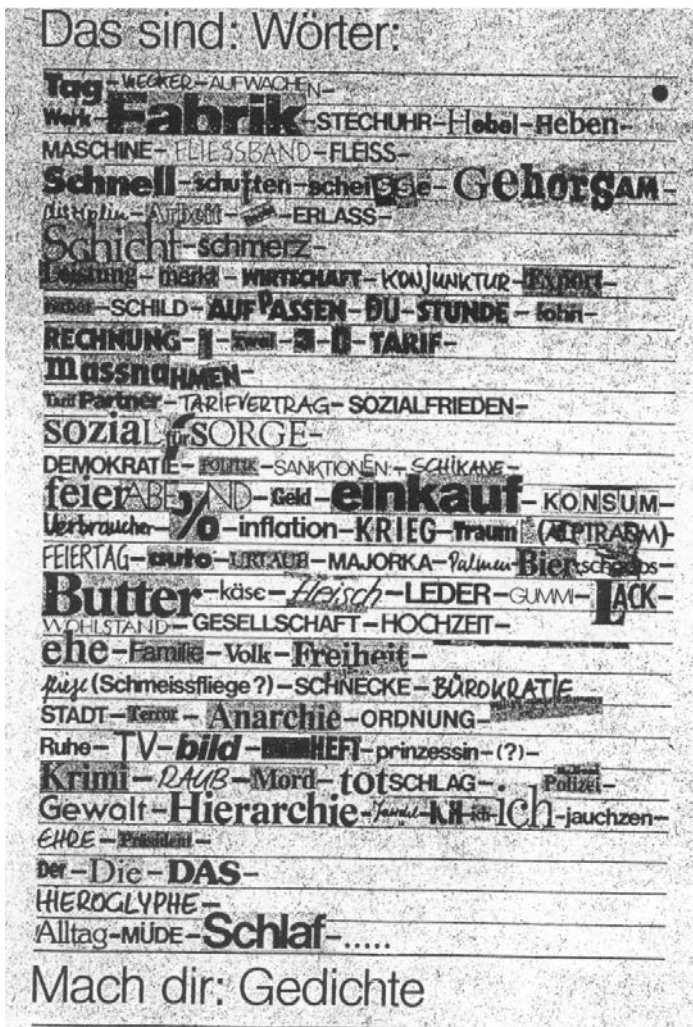 Das sind: Wörter:
Tag-WECKER-AUFWACHEN-
Werk-Fabrik-STECHUHR-Hebel-Heben-
MASCHINE-FLIESSBAND-FLEISS-
Schnell-schuften-scheisse-GehorsAM-
disziplin-Arbeit- -ERLASS-
Schicht-schmerz-
Leistung-markt-WIRTSCHAFT-KONJUNKTUR-Export-
-SCHILD-AUFPASSEN-DU-STUNDE-lohn-
RECHNUNG-1-zwei-3-0-TARIF-
massnaHMEN-
Tarif Partner-TARIFVERTRAG-SOZIALFRIEDEN-
soziaL fürSORGE-
DEMOKRATIE-POLITIK-SANKTIONEN-SCHIKANE-
feierABEND-Geld-einkauf-KONSUM-
Verbraucher-%-inflation-KRIEG-Traum (ALPTRAUM)-
FEIERTAG-auto-URLAUB-MAJORKA-Palmen-Bier-schnaps-
Butter-käse-fleisch-LEDER-GUMMI-LACK-
WOHLSTAND-GESELLSCHAFT-HOCHZEIT-
ehe-Familie-Volk-Freiheit-
fliege (Schmeissfliege?)-SCHNECKE-BÜROKRATIE
STADT-Terror-Anarchie-ORDNUNG-
Ruhe-TV-bild-HEFT-prinzessin-(?)-
Krimi-RAUB-Mord-totSCHLAG-Polizei-
Gewalt-Hierarchie- - -ich-jauchzen-
EHRE-Präsident-
Der-Die-DAS-
HIEROGLYPHE-
Alltag-MÜDE-Schlaf-.....
Mach dir: Gedichte